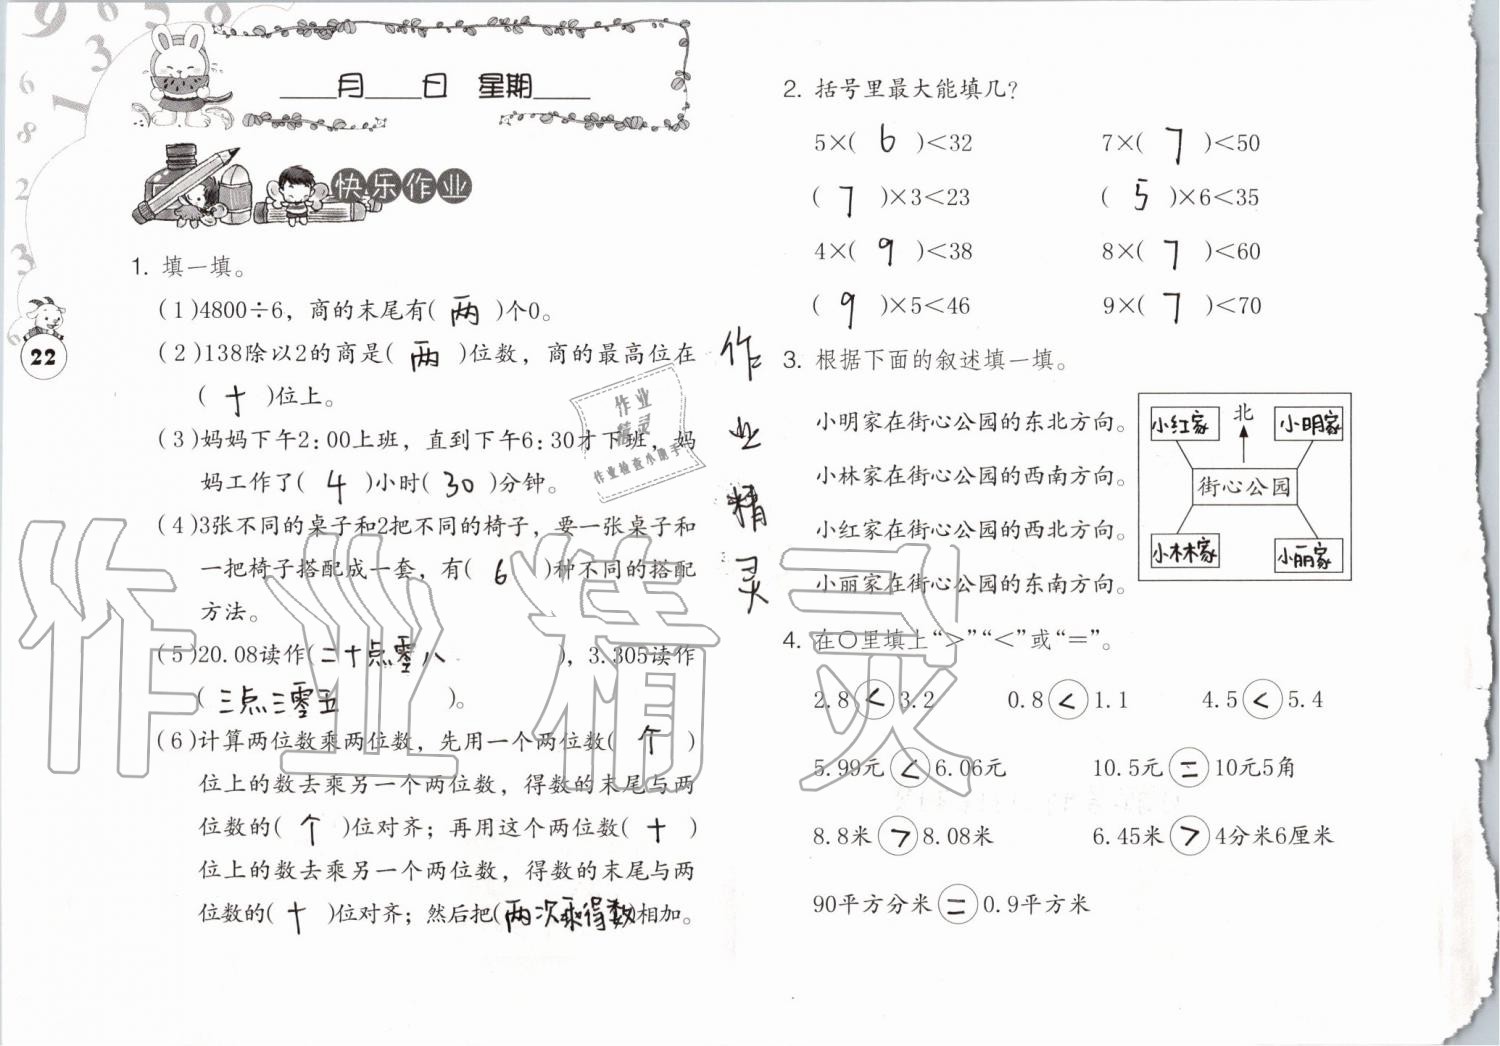 月 日 星期
快乐作业
1. 填一填。
(1)4800÷6，商的末尾有( 两 )个0。
(2)138除以2的商是( 两 )位数，商的最高位在
( 十 )位上。
(3)妈妈下午2:00上班，直到下午6:30才下班，妈
妈工作了( 4 )小时( 30 )分钟。
(4)3张不同的桌子和2把不同的椅子，要一张桌子和
一把椅子搭配成一套，有( 6 )种不同的搭配
方法。
(5)20.08读作(二十点零八 )，3.305读作
( 三点三零五 )。
(6)计算两位数乘两位数，先用一个两位数( 个 )
位上的数去乘另一个两位数，得数的末尾与两
位数的( 个 )位对齐；再用这个两位数( 十 )
位上的数去乘另一个两位数，得数的末尾与两
位数的( 十 )位对齐；然后把(两次乘得数)相加。
22
作业
精灵
作业检查小助手
作业精灵
作业精灵
2. 括号里最大能填几?
5×( 6 )<32 7×( 7 )<50
( 7 )×3<23 ( 5 )×6<35
4×( 9 )<38 8×( 7 )<60
( 9 )×5<46 9×( 7 )<70
3. 根据下面的叙述填一填。
小明家在街心公园的东北方向。
小林家在街心公园的西南方向。
小红家在街心公园的西北方向。
小丽家在街心公园的东南方向。
小红家 北 小明家
街心公园
小林家 小丽家
4. 在○里填上“>”“<”或“=”。
2.8<3.2 0.8<1.1 4.5<5.4
5.99元<6.06元 10.5元=10元5角
8.8米>8.08米 6.45米>4分米6厘米
90平方分米=0.9平方米